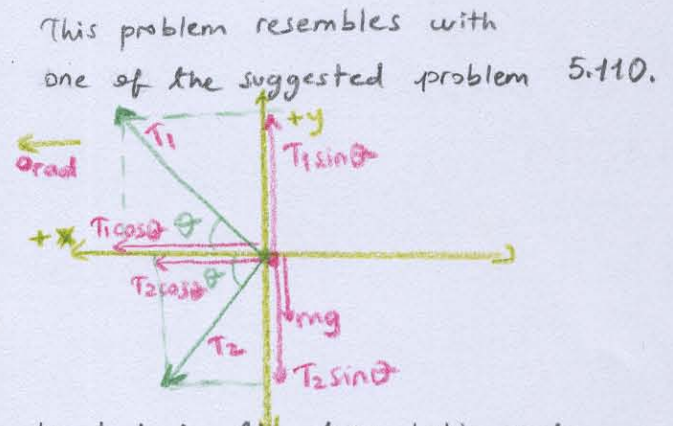 This problem resembles with
one of the suggested problem 5.110.
+y
T₁
arad
T₁sinθ
T₁cosθ
θ
+x
T₂cosθ
θ
mg
T₂
T₂sinθ